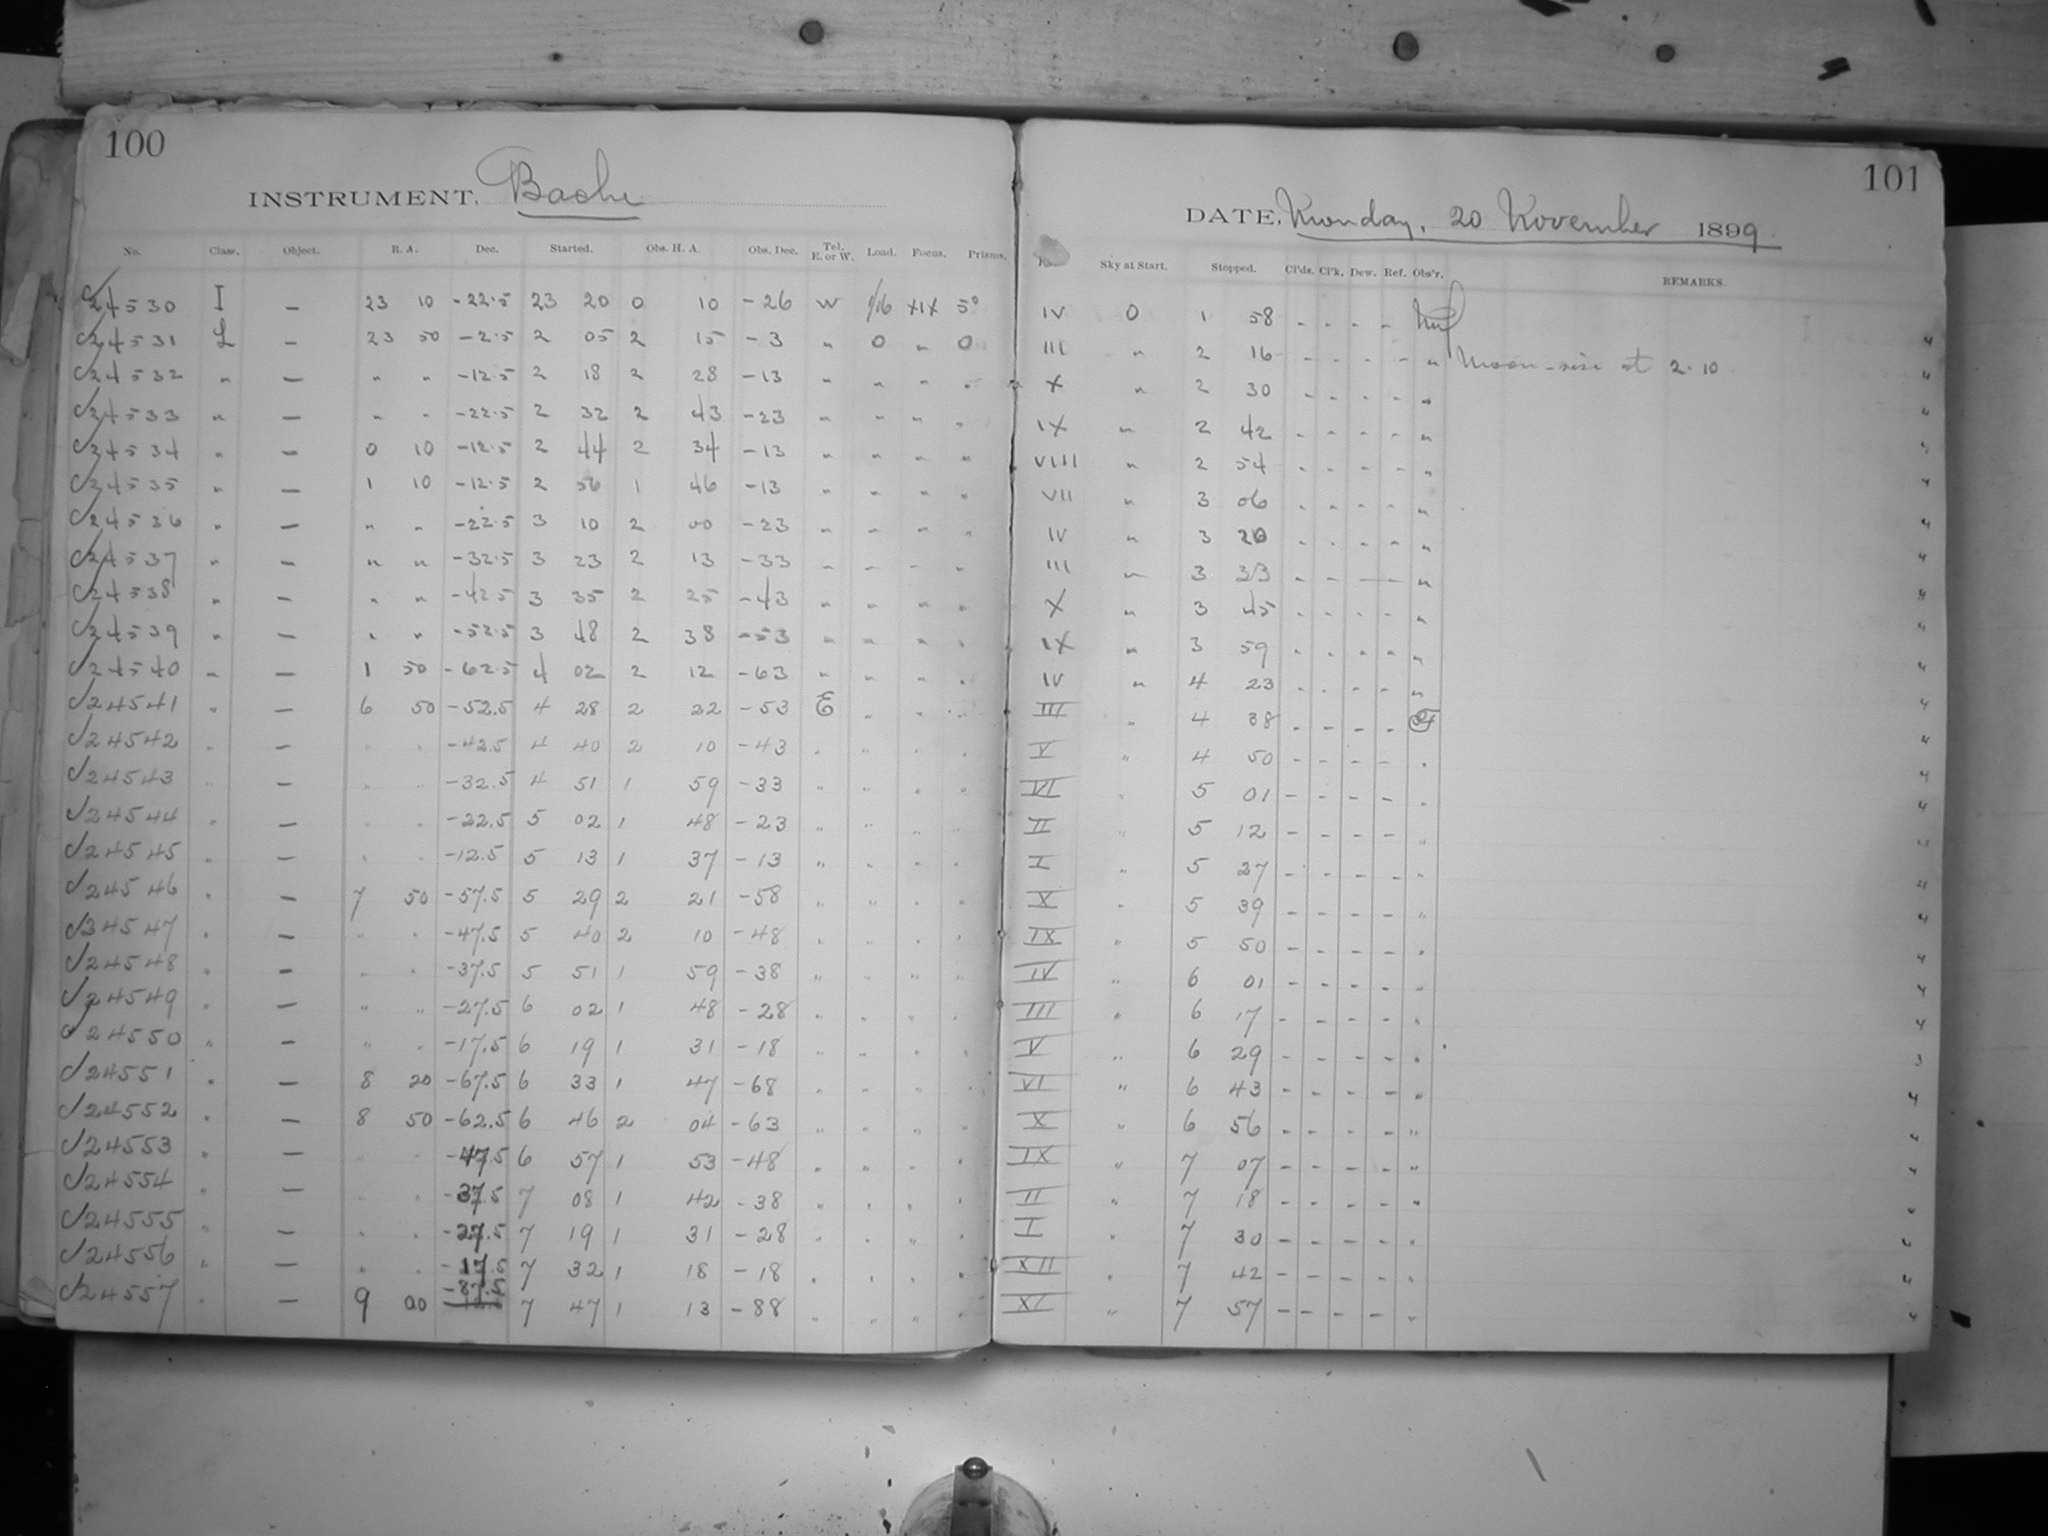 100
INSTRUMENT, Bache
No. Class. Object. R. A. Dec. Started. Obs. H. A. Obs. Dec. Tel. E. or W. Load. Focus. Prisms.
24530 I – 23 10 -22.5 23 20 0 10 -26 W 1/16 XIX 5°
24531 L – 23 50 -2.5 2 05 2 15 -3 " 0 " 0
24532 " – " " -12.5 2 18 2 28 -13 " " " "
24533 " – " " -22.5 2 32 2 43 -23 " " " "
24534 " – 0 10 -12.5 2 44 2 34 -13 " " " "
24535 " – 1 10 -12.5 2 56 1 46 -13 " " " "
24536 " – " " -22.5 3 10 2 00 -23 " " " "
24537 " – " " -32.5 3 23 2 13 -33 " " " "
24538 " – " " -42.5 3 35 2 25 -43 " " " "
24539 " – " " -52.5 3 48 2 38 -53 " " " "
24540 " – 1 50 -62.5 4 02 2 12 -63 " " " "
24541 " – 6 50 -52.5 4 28 2 22 -53 E " " "
24542 " – " " -42.5 4 40 2 10 -43 " " " "
24543 " – " " -32.5 4 51 1 59 -33 " " " "
24544 " – " " -22.5 5 02 1 48 -23 " " " "
24545 " – " " -12.5 5 13 1 37 -13 " " " "
24546 " – 7 50 -57.5 5 29 2 21 -58 " " " "
24547 " – " " -47.5 5 40 2 10 -48 " " " "
24548 " – " " -37.5 5 51 1 59 -38 " " " "
24549 " – " " -27.5 6 02 1 48 -28 " " " "
24550 " – " " -17.5 6 19 1 31 -18 " " " "
24551 " – 8 20 -67.5 6 33 1 47 -68 " " " "
24552 " – 8 50 -62.5 6 46 2 04 -63 " " " "
24553 " – " " -47.5 6 57 1 53 -48 " " " "
24554 " – " " -37.5 7 08 1 42 -38 " " " "
24555 " – " " -27.5 7 19 1 31 -28 " " " "
24556 " – " " -17.5 7 32 1 18 -18 " " " "
24557 " – 9 00 -87.5 7 47 1 13 -88 " " " "
101
DATE, Monday, 20 November 1899
Sky at Start. Stopped. Cl'ds. Cl'k. Dew. Ref. Obs'r. REMARKS.
IV 0 1 58 - - - -
III " 2 16 - - - - " Moon-rise at 2.10
X " 2 30 - - - - "
IX " 2 42 - - - - "
VIII " 2 54 - - - - "
VII " 3 06 - - - - "
IV " 3 20 - - - - "
III " 3 33 - - - - "
X " 3 45 - - - - "
IX " 3 59 - - - - "
IV " 4 23 - - - - "
III " 4 38 - - - -
V " 4 50 - - - - "
VI " 5 01 - - - - "
II " 5 12 - - - - "
I " 5 27 - - - - "
X " 5 39 - - - - "
IX " 5 50 - - - - "
IV " 6 01 - - - - "
III " 6 17 - - - - "
V " 6 29 - - - - "
VI " 6 43 - - - - "
X " 6 56 - - - - "
IX " 7 07 - - - - "
II " 7 18 - - - - "
I " 7 30 - - - - "
XII " 7 42 - - - - "
XI " 7 57 - - - - "